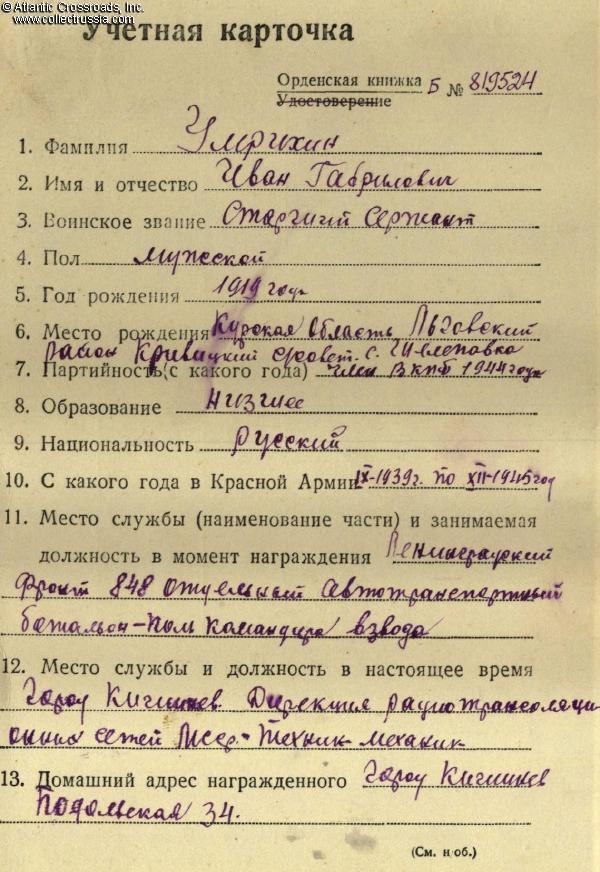 © Atlantic Crossroads, Inc.
www.collectrussia.com
Учетная карточка
Орденская книжка Б № 819524
Удостоверение
1. Фамилия Умрихин
2. Имя и отчество Иван Гаврилович
3. Воинское звание Старший сержант
4. Пол мужской
5. Год рождения 1919 года
6. Место рождения Курская область Льговский
район Кривицкий с/совет. с.
7. Партийность (с какого года) член ВКПб 1944 года
8. Образование низшее
9. Национальность Русский
10. С какого года в Красной Армии IX-1939г. по XII-1945 год
11. Место службы (наименование части) и занимаемая
должность в момент награждения Ленинградский
фронт 848 отдельный автотранспортный
батальон-пом командира взвода
12. Место службы и должность в настоящее время
Город Кишинев Дирекция радиотрансляци-
онных сетей Мсср-техник-механик
13. Домашний адрес награжденного Город Кишинев
Подольская 34.
(См. н об.)